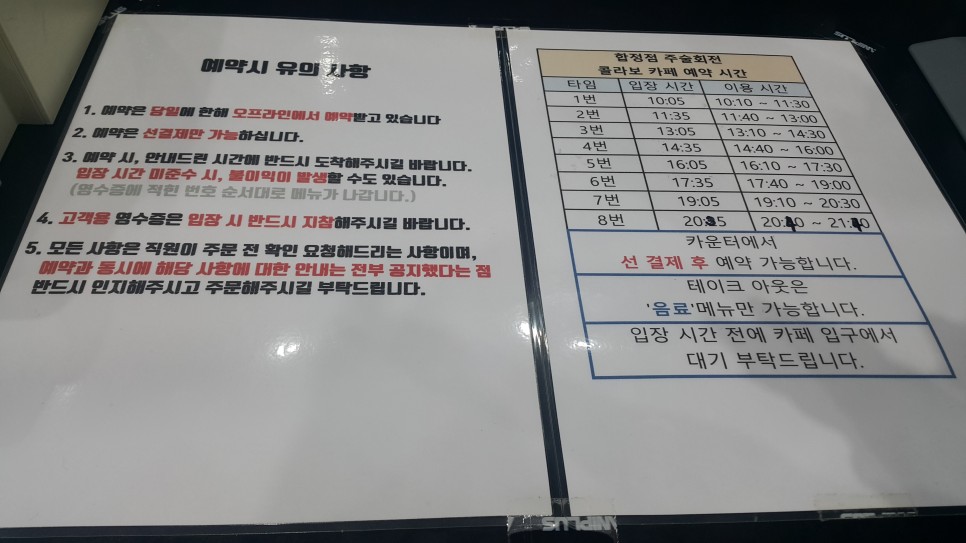 예약시 유의 사항
1. 예약은 당일에 한해 오프라인에서 예약받고 있습니다
2. 예약은 선결제만 가능하십니다.
3. 예약 시, 안내드린 시간에 반드시 도착해주시길 바랍니다.
입장 시간 미준수 시, 불이익이 발생할 수도 있습니다.
(영수증에 적힌 번호 순서대로 메뉴가 나갑니다.)
4. 고객용 영수증은 입장 시 반드시 지참해주시길 바랍니다.
5. 모든 사항은 직원이 주문 전 확인 요청해드리는 사항이며,
예약과 동시에 해당 사항에 대한 안내는 전부 공지했다는 점
반드시 인지해주시고 주문해주시길 부탁드립니다.
합정점 주술회전
콜라보 카페 예약 시간
타임 입장 시간 이용 시간
1번 10:05 10:10 ~ 11:30
2번 11:35 11:40 ~ 13:00
3번 13:05 13:10 ~ 14:30
4번 14:35 14:40 ~ 16:00
5번 16:05 16:10 ~ 17:30
6번 17:35 17:40 ~ 19:00
7번 19:05 19:10 ~ 20:30
8번
카운터에서
선 결제 후 예약 가능합니다.
테이크 아웃은
'음료'메뉴만 가능합니다.
입장 시간 전에 카페 입구에서
대기 부탁드립니다.